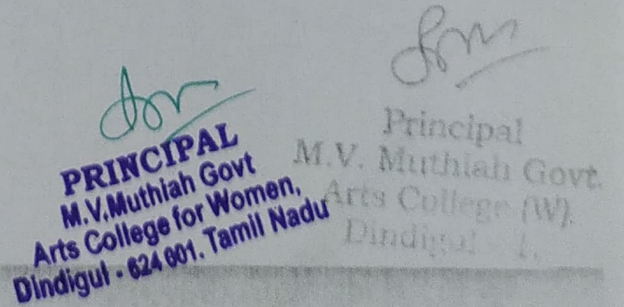 PRINCIPAL
M.V.Muthiah Govt
Arts College for Women,
Dindigul - 624 001. Tamil Nadu
Principal
M.V. Muthiah Govt.
Arts College (W).
Dindigul 1.